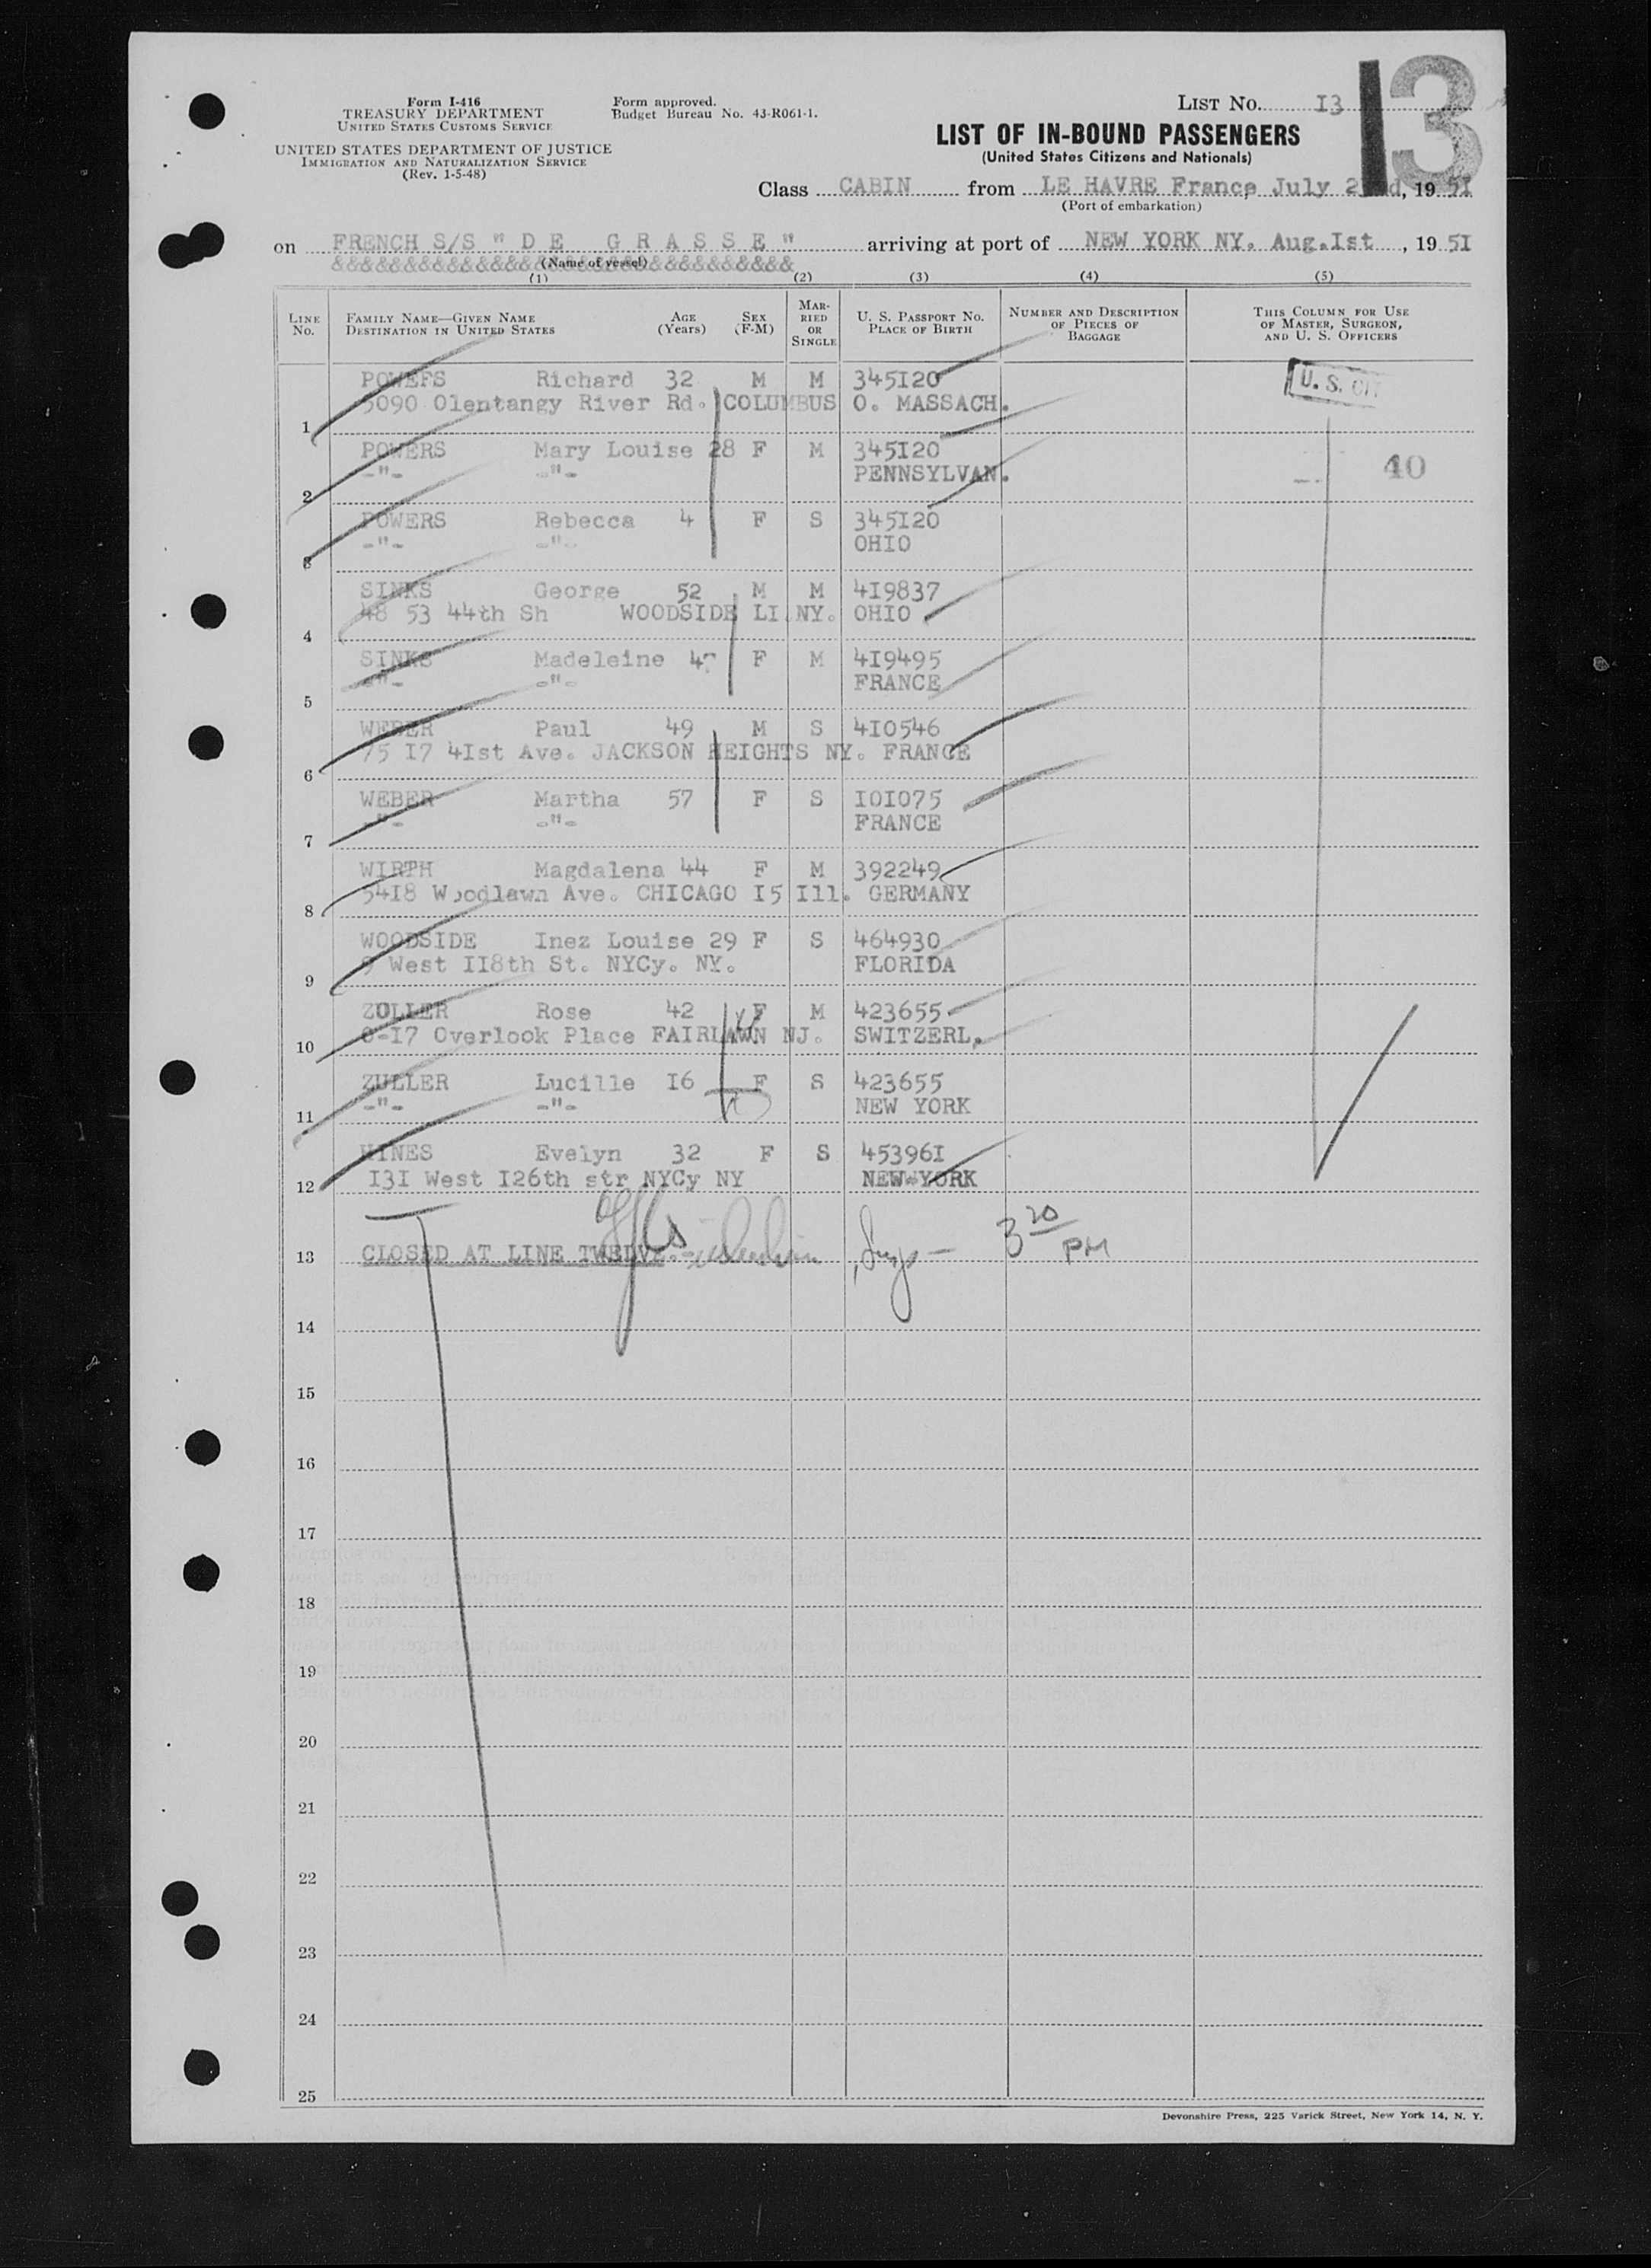 Form I-416
TREASURY DEPARTMENT
UNITED STATES CUSTOMS SERVICE
UNITED STATES DEPARTMENT OF JUSTICE
IMMIGRATION AND NATURALIZATION SERVICE
(Rev. 1-5-48)
Form approved.
Budget Bureau No. 43-R061-1.
LIST NO. I3
13
LIST OF IN-BOUND PASSENGERS
(United States Citizens and Nationals)
Class CABIN from LE HAVRE France, July 2 d, 19 5I
(Port of embarkation)
on FRENCH S/S " D E G R A S S E " arriving at port of NEW YORK NY. Aug.Ist , 19 5I
&&&&&&&&&&&&&&&&&&&&&&&&&&&&&&&&
(Name of vessel)
(1) (2) (3) (4) (5)
LINE No. FAMILY NAME—GIVEN NAME DESTINATION IN UNITED STATES AGE (Years) SEX (F-M) MARRIED OR SINGLE U. S. PASSPORT NO. PLACE OF BIRTH NUMBER AND DESCRIPTION OF PIECES OF BAGGAGE THIS COLUMN FOR USE OF MASTER, SURGEON, AND U. S. OFFICERS
POWEFS Richard 32 M M 345I20 U. S. CIT
1 5090 Olentangy River Rd. COLUMBUS O. MASSACH.
POWERS Mary Louise 28 F M 345I20 40
2 -"- -"- PENNSYLVAN.
POWERS Rebecca 4 F S 345I20
3 -"- -"- OHIO
SINKS George 52 M M 4I9837
4 48 53 44th Sh WOODSIDE LI NY. OHIO
SINKS Madeleine F M 4I9495
5 -"- -"- FRANCE
WEBER Paul 49 M S 4I0546
6 75 I7 4Ist Ave. JACKSON HEIGHTS NY. FRANCE
WEBER Martha 57 F S I0I075
7 -"- -"- FRANCE
WIRTH Magdalena 44 F M 392249
8 54I8 Woodlawn Ave. CHICAGO I5 Ill. GERMANY
WOODSIDE Inez Louise 29 F S 464930
9 9 West II8th St. NYCy. NY. FLORIDA
ZOLLER Rose 42 F M 423655
10 0-I7 Overlook Place FAIRLAWN NJ. SWITZERL.
ZULLER Lucille I6 F S 423655
11 -"- -"- NEW YORK
HINES Evelyn 32 F S 45396I
12 I3I West I26th str NYCy NY NEW-YORK
13 CLOSED AT LINE TWELVE.- 3 20 PM
14
15
16
17
18
19
20
21
22
23
24
25
Devonshire Press, 225 Varick Street, New York 14, N. Y.